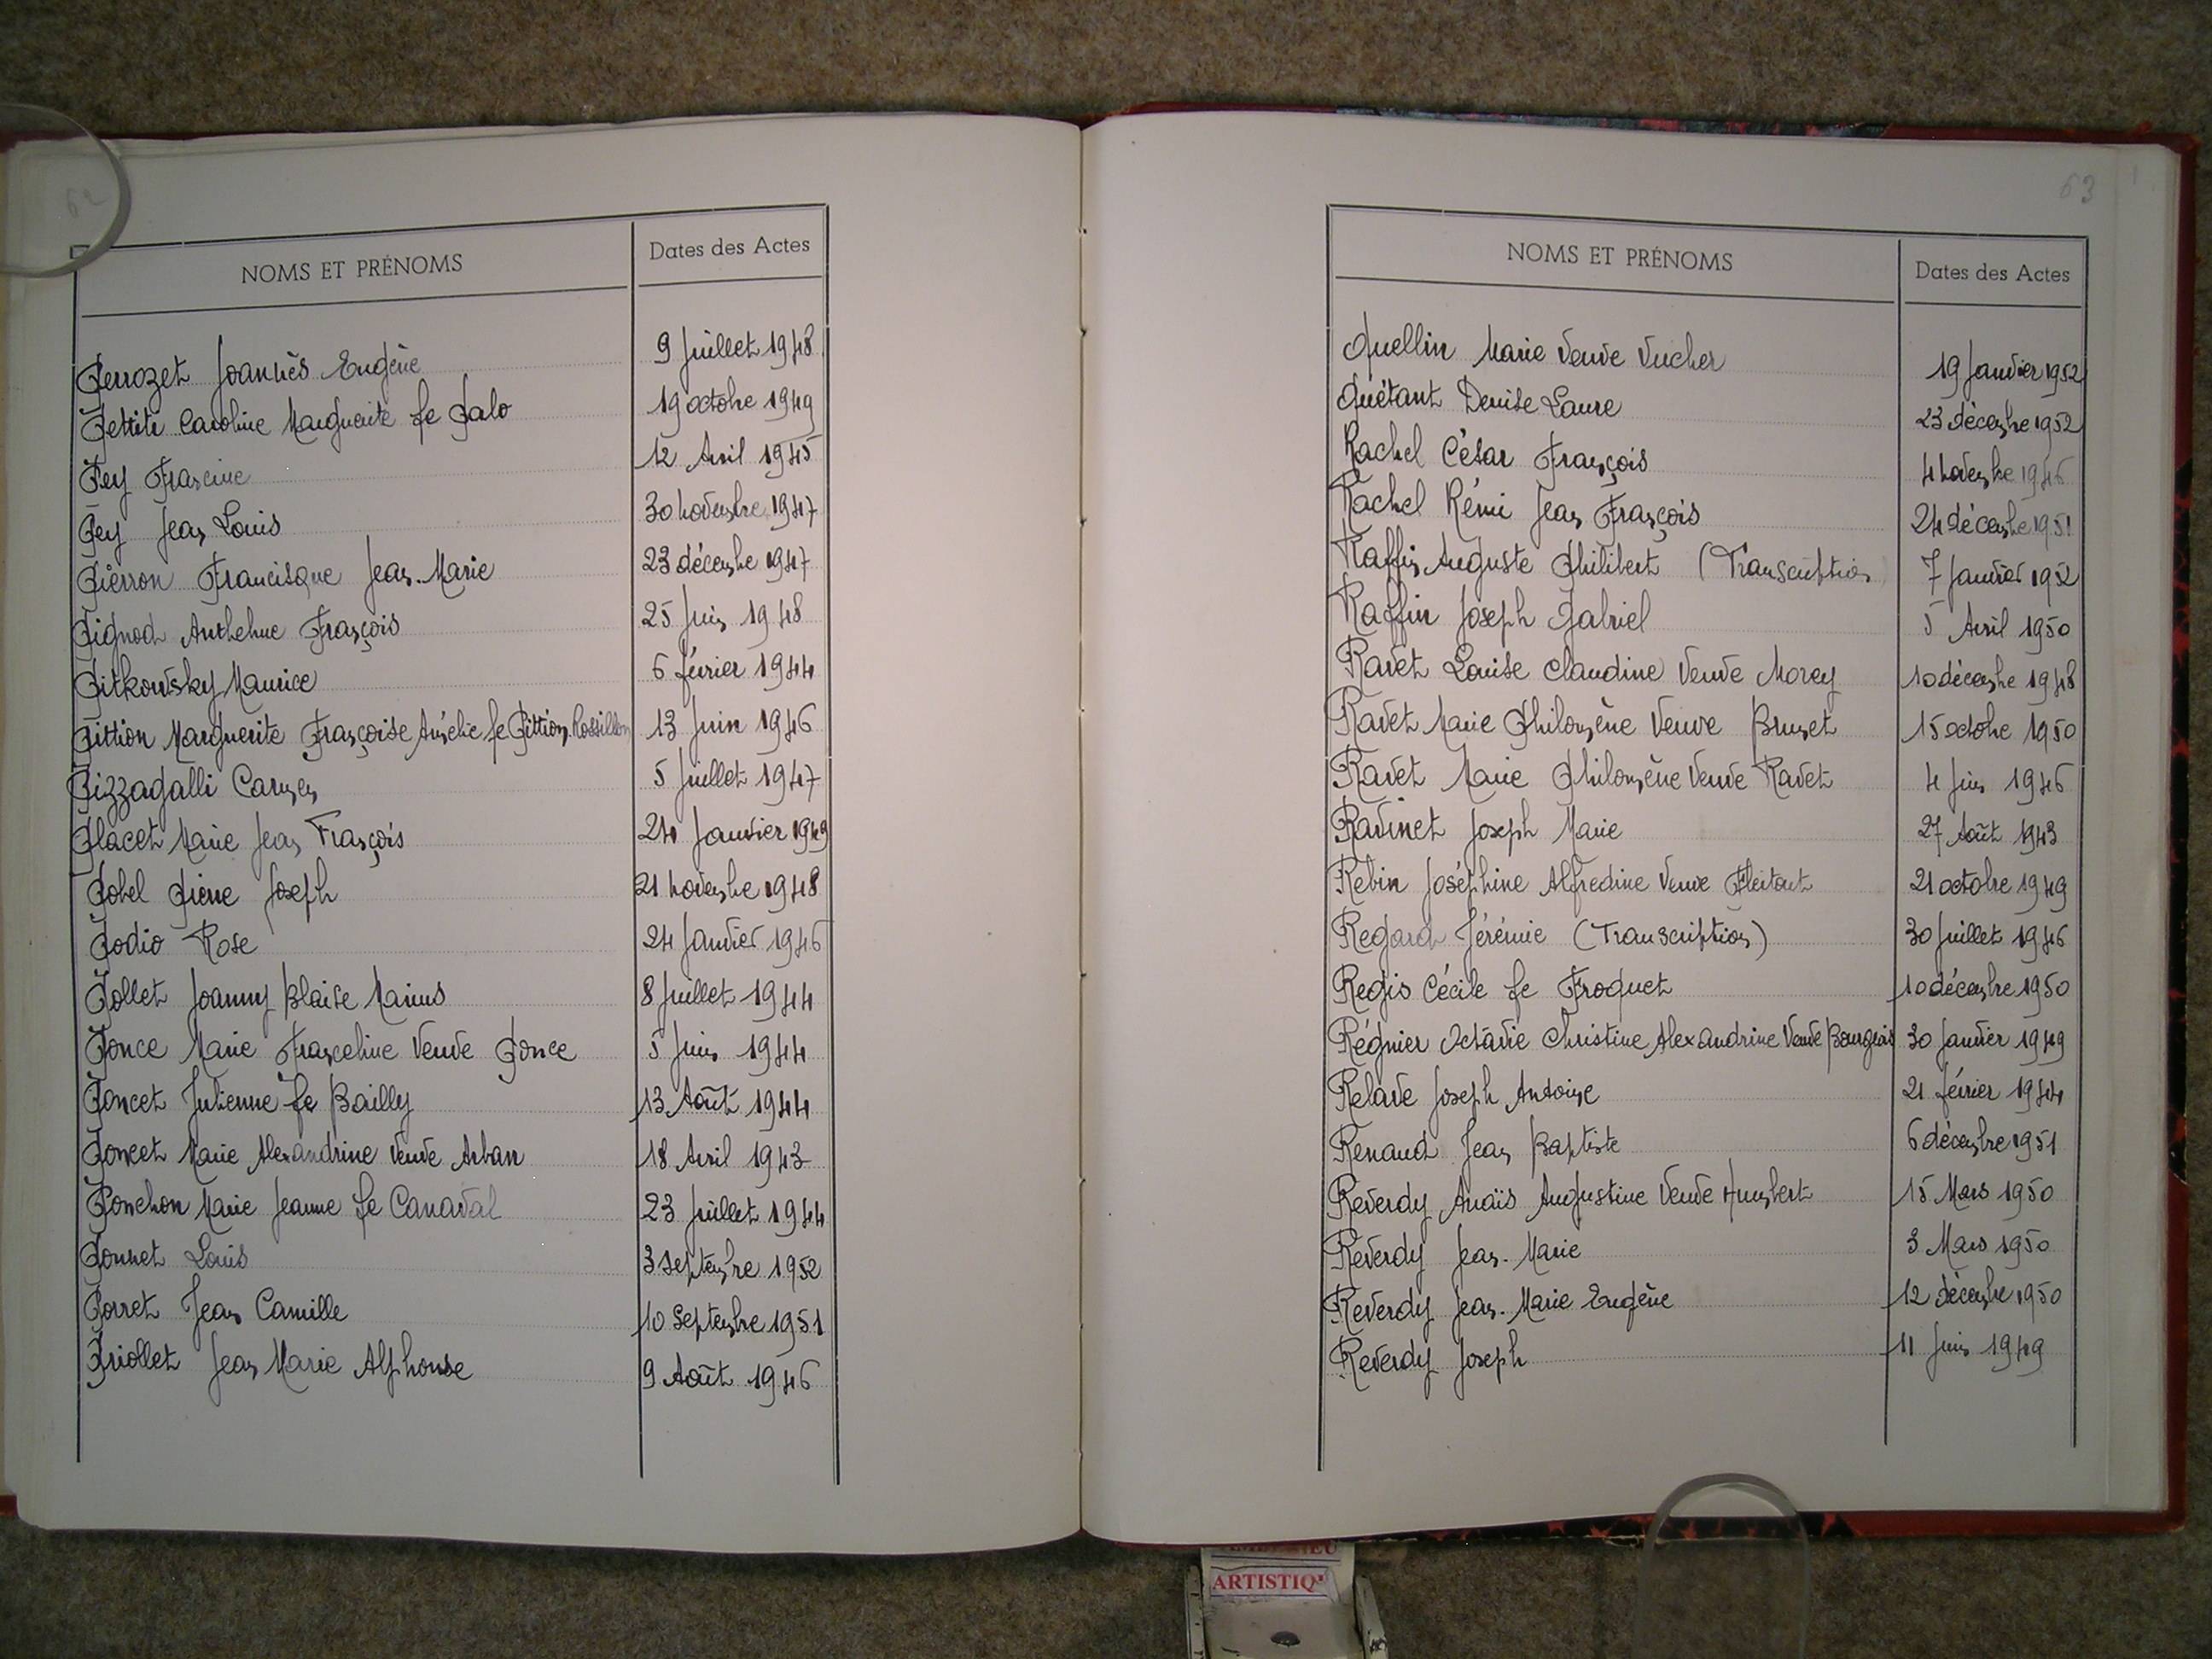 62
NOMS ET PRÉNOMS Dates des Actes
Perrozet Joannès Eugène 9 Juillet 1948
Pettiti Caroline Marguerite fe Palo 19 octobre 1949
Pey Francine 12 Avril 1945
Pey Jean Louis 30 novembre 1947
Pierron Francisque Jean-Marie 23 décembre 1947
Pignod Anthelme François 25 Juin 1948
Pitkowsky Maurice 6 février 1944
Pittion Marguerite Françoise Amélie fe Pittion-Rossillon 13 Juin 1946
Pizzagalli Carmen 5 Juillet 1947
Placet Marie Jean François 24 Janvier 1949
Pobel Pierre Joseph 21 novembre 1948
Podio Rose 24 Janvier 1946
Pollet Joanny Blaise Marius 8 Juillet 1944
Ponce Marie Franceline Veuve Ponce 5 Juin 1944
Poncet Julienne fe Bailly 13 Août 1944
Poncet Marie Alexandrine Veuve Arban 18 Avril 1943
Ponchon Marie Jeanne fe Canaval 23 Juillet 1944
Ponnet Louis 3 septembre 1952
Porret Jean Camille 10 Septembre 1951
Priollet Jean Marie Alphonse 9 Août 1946
63
NOMS ET PRÉNOMS Dates des Actes
Quellin Marie Veuve Vucher 19 Janvier 1952
Quétant Denise Laure 23 décembre 1952
Rachel César François 4 novembre 1946
Rachel Rémi Jean François 24 décembre 1951
Raffin Auguste Philibert (Transcription) 7 Janvier 1952
Raffin Joseph Gabriel 5 Avril 1950
Ravet Louise Claudine Veuve Morey 10 décembre 1948
Ravet Marie Philomène Veuve Brunet 15 octobre 1950
Ravet Marie Philomène Veuve Ravet 4 Juin 1946
Ravinet Joseph Marie 27 Août 1943
Rebin Joséphine Alfredine Veuve 21 octobre 1949
Regard Jérémie (Transcription) 30 Juillet 1946
Regis Cécile fe Froquet 10 décembre 1950
Régnier Octavie Christine Alexandrine Veuve Bourgeois 30 Janvier 1949
Relave Joseph Antoine 21 février 1944
Renaud Jean Baptiste 6 décembre 1951
Reverdy Anaïs Augustine Veuve Humbert 15 Mars 1950
Reverdy Jean-Marie 3 Mars 1950
Reverdy Jean-Marie Eugène 12 décembre 1950
Reverdy Joseph 11 Juin 1949
ARTISTIQ